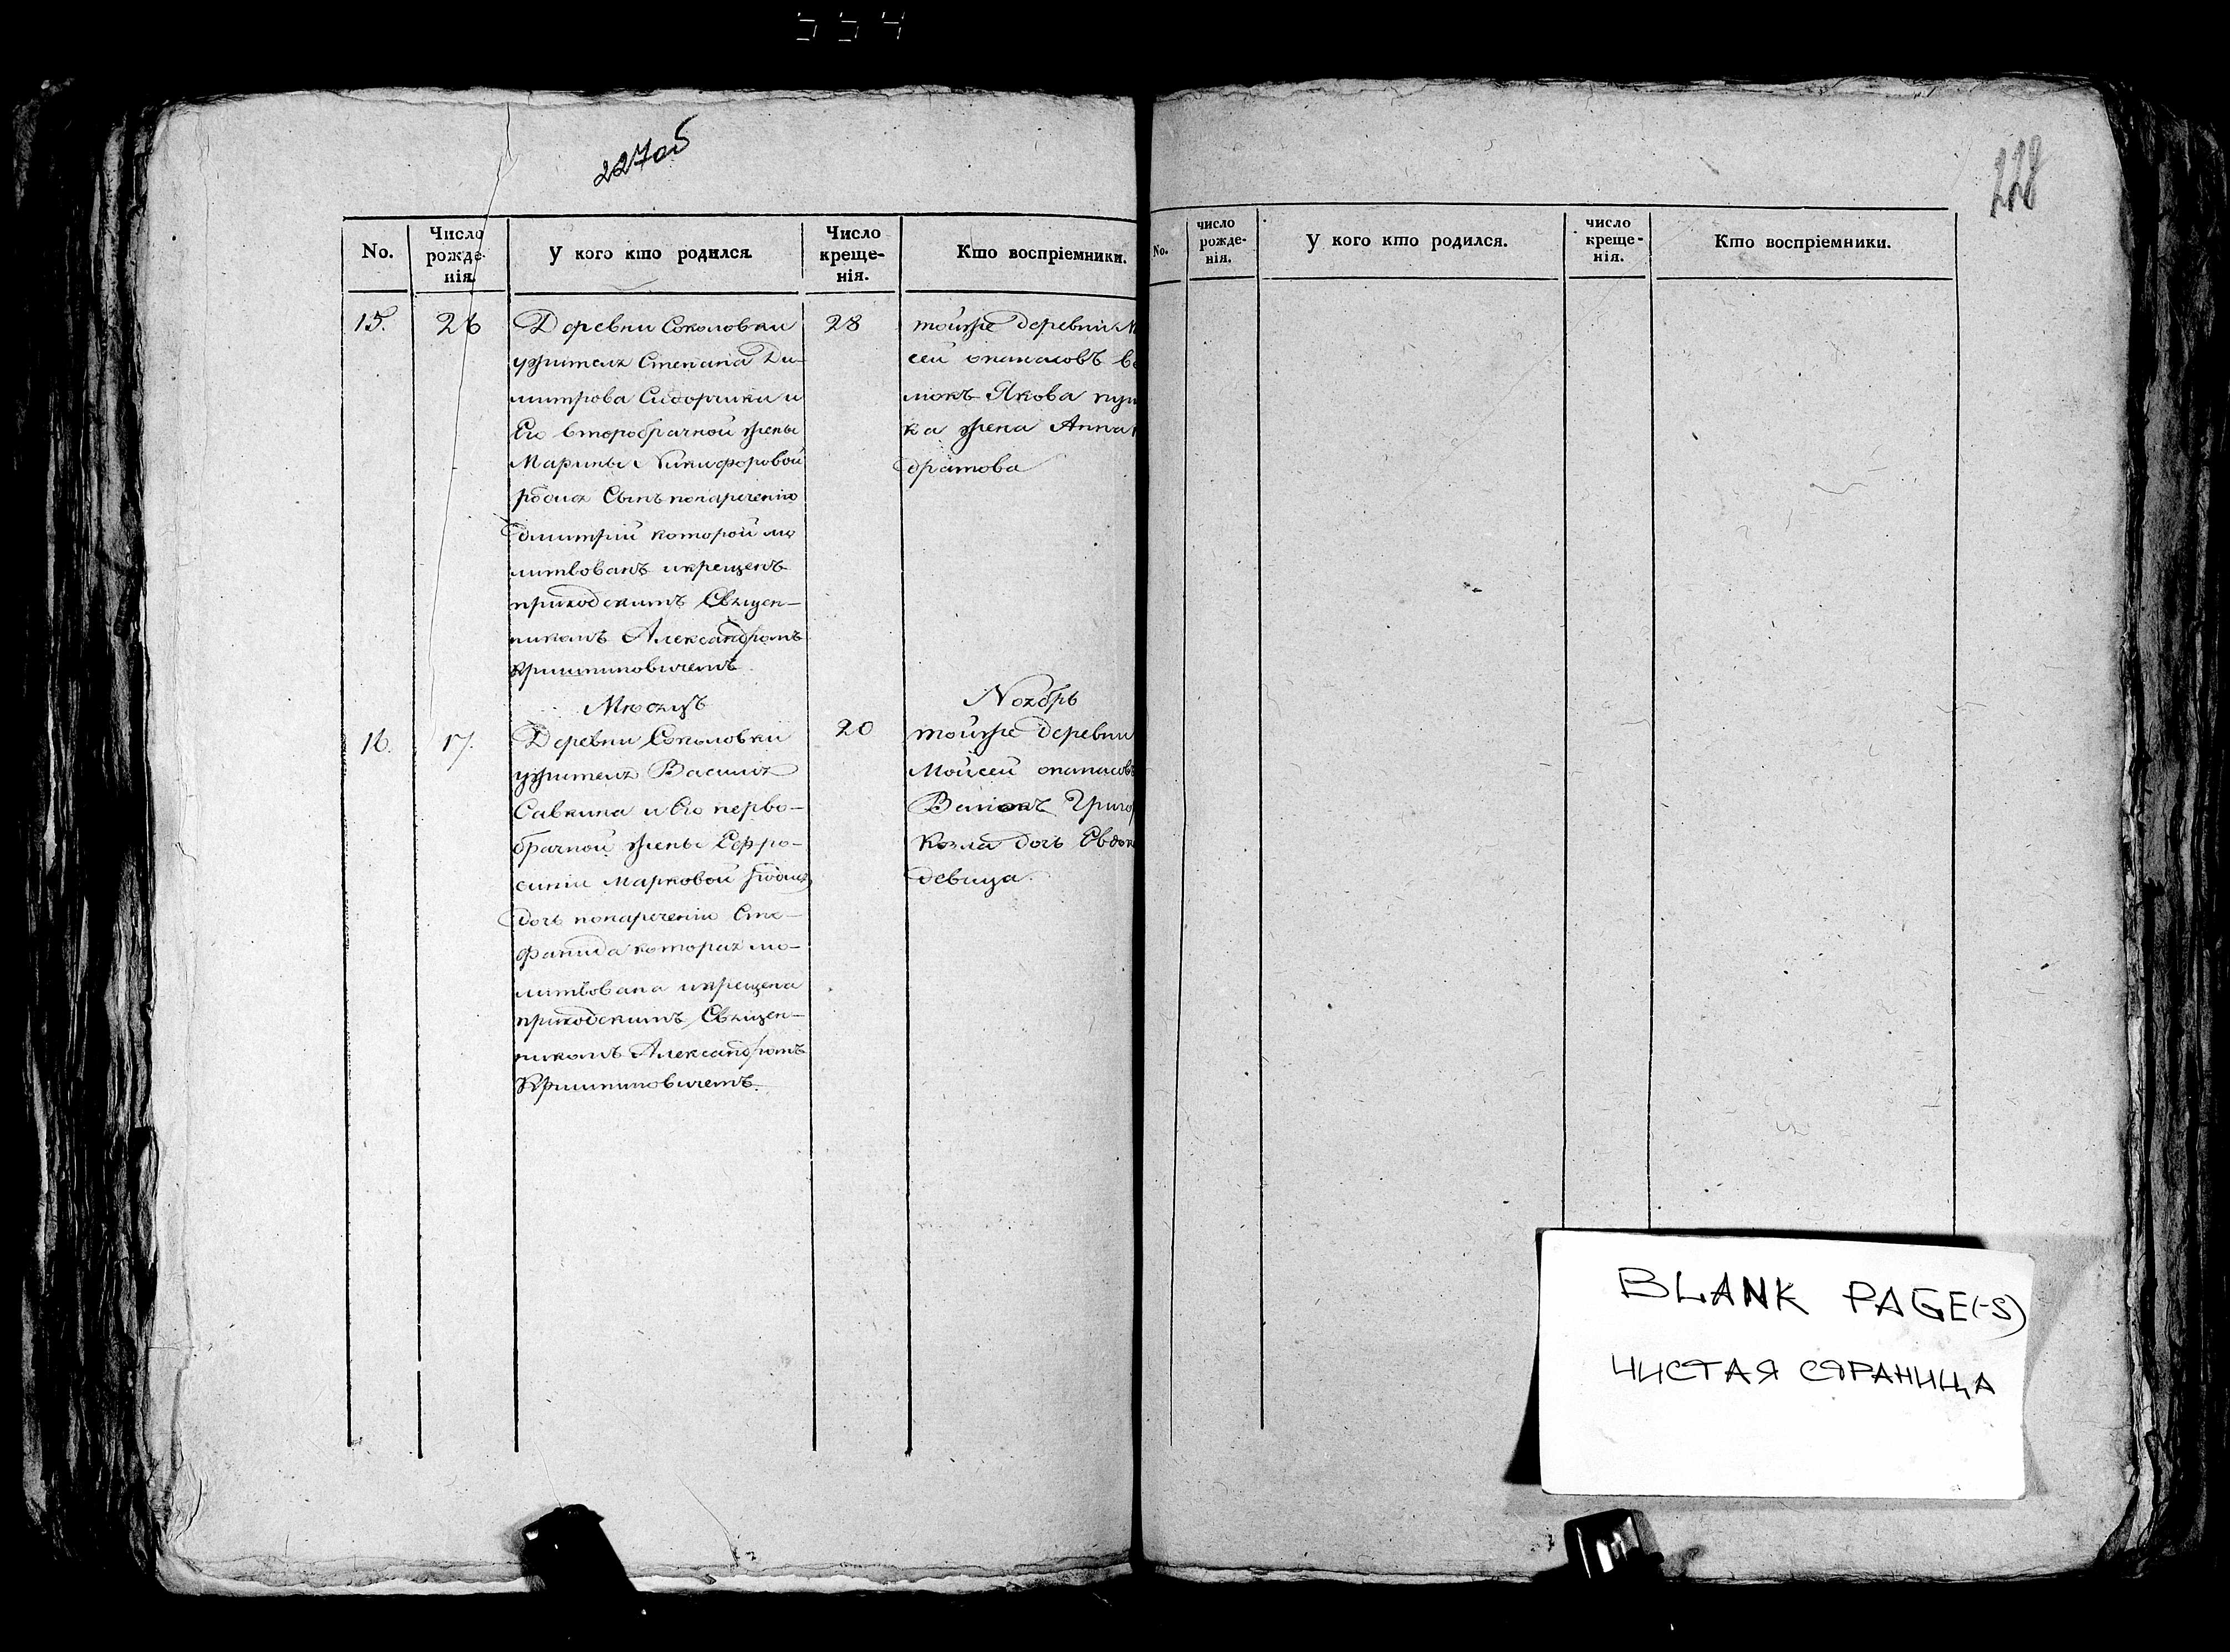 554
227об
228
No.
Число рожденія.
У кого кто родился.
Число крещенія.
Кто воспріемники.
15.
26
Деревни Соколовки
ужителя Степана Ди-
митрова Сидорчики и
Его второбрачной жены
Марины Никифоровой
родися Сынъ понаречению
димитрій которой мо
литвованъ икрещенъ
приходскимъ Священ-
никомъ Александромъ
28
тойже деревни
сей опанасовъ
люкъ Якова
ка жена Анна
дратова
Мѣсяцъ
Ноябрь
16.
17.
Деревни Соколовки
ужителя Василия
Савкина и Его перво-
брачной жены Ефро-
синіи Марковой родися
дочь понаречению Сте-
фанида которая мо-
литвована икрещена
приходскимъ Священ-
никомъ Александромъ
20
тойже деревни
Мойсей опанасовъ
Григор
Козла дочь Евдок
девица.
No.
число рожденія.
У кого кто родился.
число крещенія.
Кто воспріемники.
BLANK PAGE(-S)
ЧИСТАЯ СТРАНИЦА